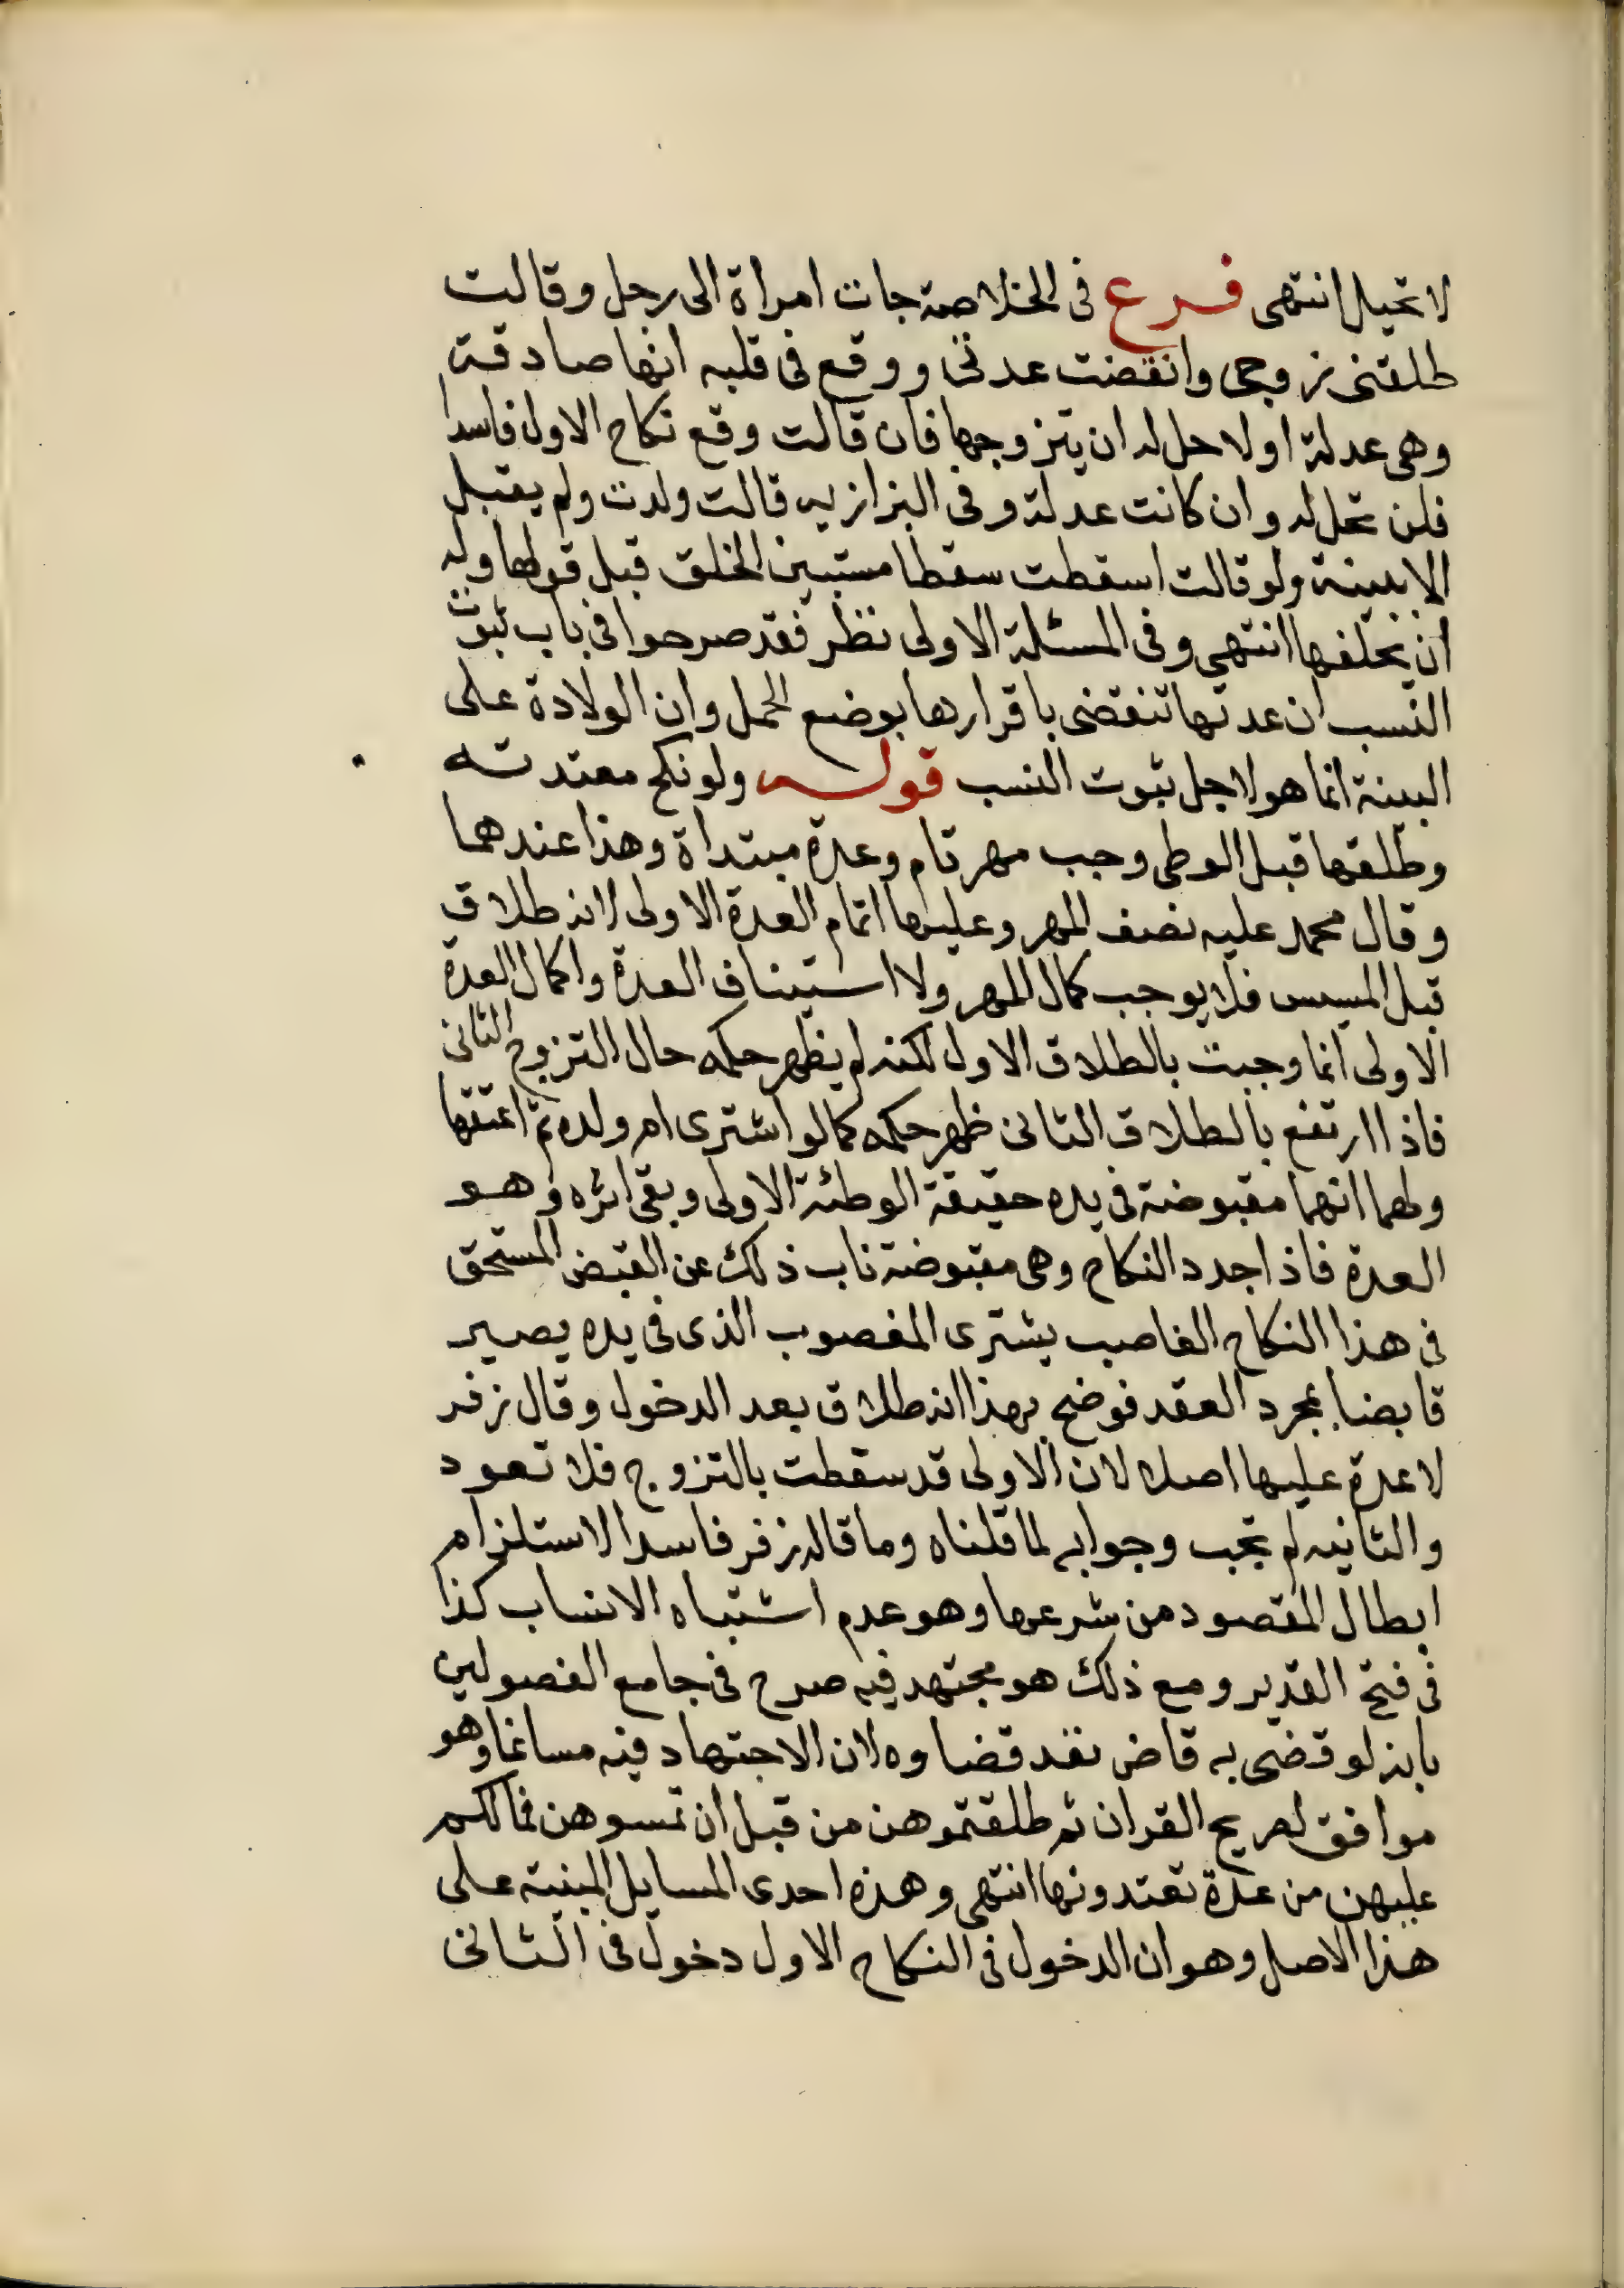 لا تحيل انتهى فرع فى الخلاصة جات امراة الى رجل وقالت
طلقنى زوجى وانقضت عدتى ووقع فى قلبه انها صادقة
وهى عدلة اولا حل له ان يتزوجها فان قالت وقع نكاح الاول فاسدا
فلن تحل له وان كانت عدلة وفى البزازيه قالت ولدت ولم يقبل
الا ببينة ولو قالت اسقطت سقطا مستبين الخلق قبل قولها وله
ان يحلفها انتهى وفى المسئلة الاولى نظر فقد صرحوا فى باب ثبوت
النسب ان عدتها تنقضى باقرارها بوضع الحمل وان الولادة على
البينة انما هو لاجل ثبوت النسب قوله ولو نكح معتدته
وطلقها قبل الوطى وجب مهر تام وعدة مبتداة وهذا عندهما
وقال محمد عليه نصف المهر وعليها اتمام العدة الاولى لانه طلاق
قبل المسيس فلا يوجب كمال المهر ولا استيناف العدة واكمال العدة
الاولى انما وجبت بالطلاق الاول لكنه لم يظهر حكمه حال التزوج الثانى
فاذا ارتفع بالطلاق الثانى ظهر حكمه كما لو اشترى ام ولده ثم اعتقها
ولهما انهما مقبوضة فى يده حقيقة الوطئة الاولى وبقى اثره وهو
العدة فاذا جدد النكاح وهى مقبوضة ناب ذلك عن القبض المستحق
فى هذا النكاح الغاصب يشترى المغصوب الذى فى يده يصير
قابضا بمجرد العقد فوضح بهذا انه طلاق بعد الدخول وقال زفر
لا عدة عليها اصلا لان الاولى قد سقطت بالتزوج فلا تعود
والثانيه لم تجب وجوابه لما قلناه وما قاله زفر فاسدا لاستلزام
ابطال المقصود من شرعها وهو عدم اشتباه الانساب كذا
فى فتح القدير ومع ذلك هو مجتهد فيه صرح فى جامع الفصولين
بانه لو قضى به قاض نفذ قضاوه لان الاجتهاد فيه مساغا وهو
موافق لصريح القران ثم طلقتموهن من قبل ان تمسوهن فمالكم
عليهن من عدة تعتدونها انتهى وهذه احدى المسايل المبنية على
هذا الاصل وهو ان الدخول فى النكاح الاول دخول فى الثانى